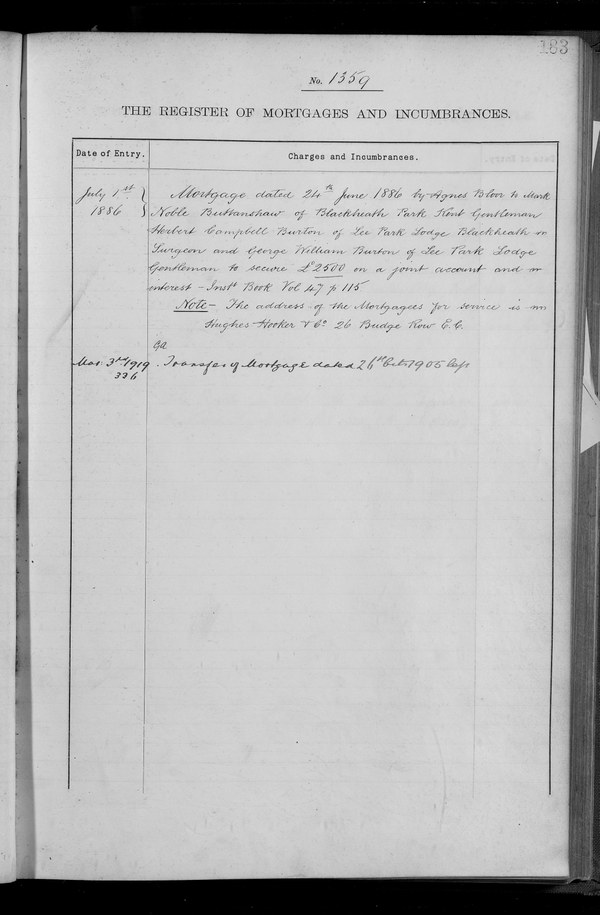 183
No. 1359
THE REGISTER OF MORTGAGES AND INCUMBRANCES.
Date of Entry.
Charges and Incumbrances.
July 1st 1886
Mortgage dated 24th June 1886 by Agnes Bloor to Mark
Noble Buttanshaw of Blackheath Park Kent Gentleman
Herbert Campbell Burton of Lee Park Lodge Blackheath
Surgeon and George William Burton of Lee Park Lodge
Gentleman to secure £2500 on a joint account and
interest - Inst. Book Vol 47 p 115
Note - The address of the Mortgagees for service is
Hughes Hooker & Co 26 Budge Row E.C.
Mar. 3rd 1919
336
Transfer of Mortgage dated 26th Octr 1905